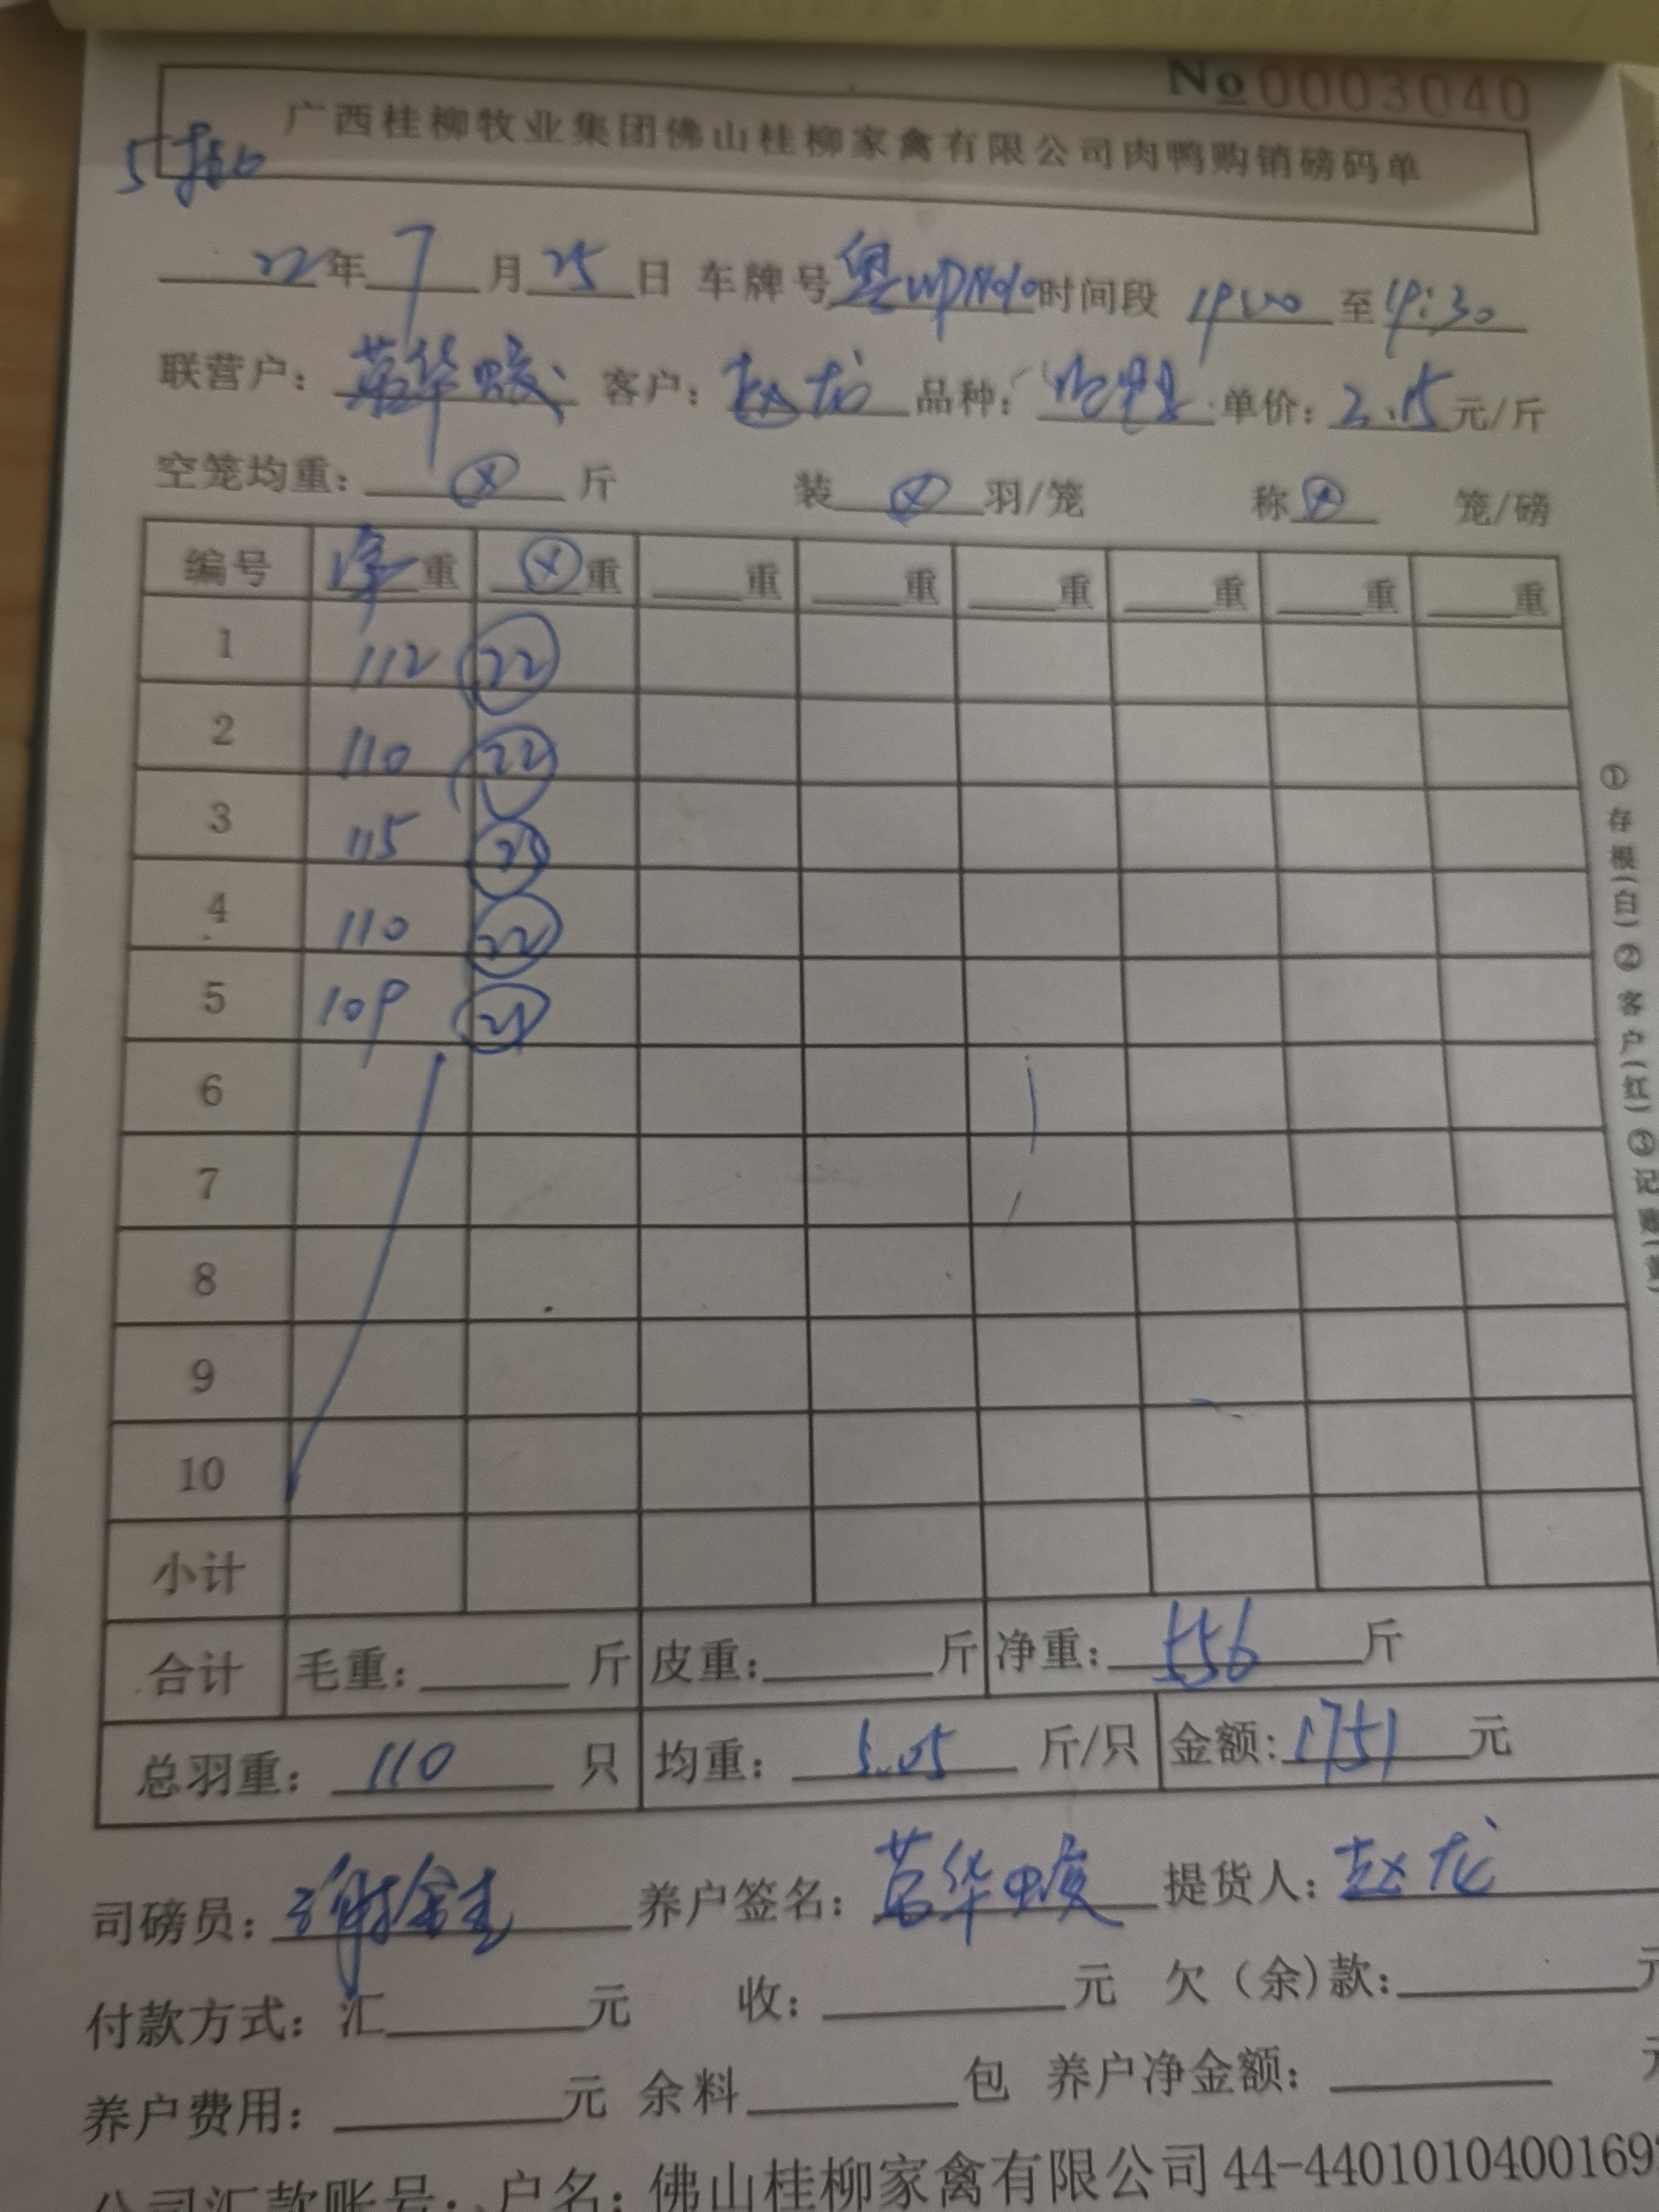 No 0003040
广西桂柳牧业集团佛山桂柳家禽有限公司肉鸭购销磅码单
22年7月25日 车牌号粤 时间段 19:00 至 19:30
联营户： 客户：赵龙 品种： 单价：3.15元/斤
空笼均重：ⓧ斤 装ⓧ羽/笼 称ⓧ 笼/磅
编号 净重 ⓧ重 重 重 重 重 重 重
1 112 22
2 110 22
3 115 23
4 110 22
5 109 21
6
7
8
9
10
小计
合计 毛重： 斤 皮重： 斤 净重：556斤
总羽重：110只 均重：5.05斤/只 金额：1751元
司磅员： 养户签名： 提货人：赵龙
付款方式：汇 元 收： 元 欠（余）款： 元
养户费用： 元 余料 包 养户净金额： 元
公司汇款账号：户名：佛山桂柳家禽有限公司 44-4401010400169
①存根(白)②客户(红)③记账(黄)